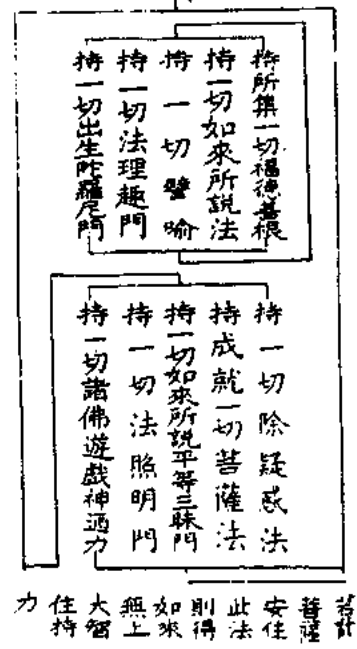 持所集一切福德善根
持一切如來所說法
持一切譬喻
持一切法理趣門
持一切出生陀羅尼門
持一切除疑惑法
持成就一切菩薩法
持一切如來所說平等三昧門
持一切法照明門
持一切諸佛遊戲神通力
若諸
菩薩
安住
此法
則得
如來
無上
大智
住持
力